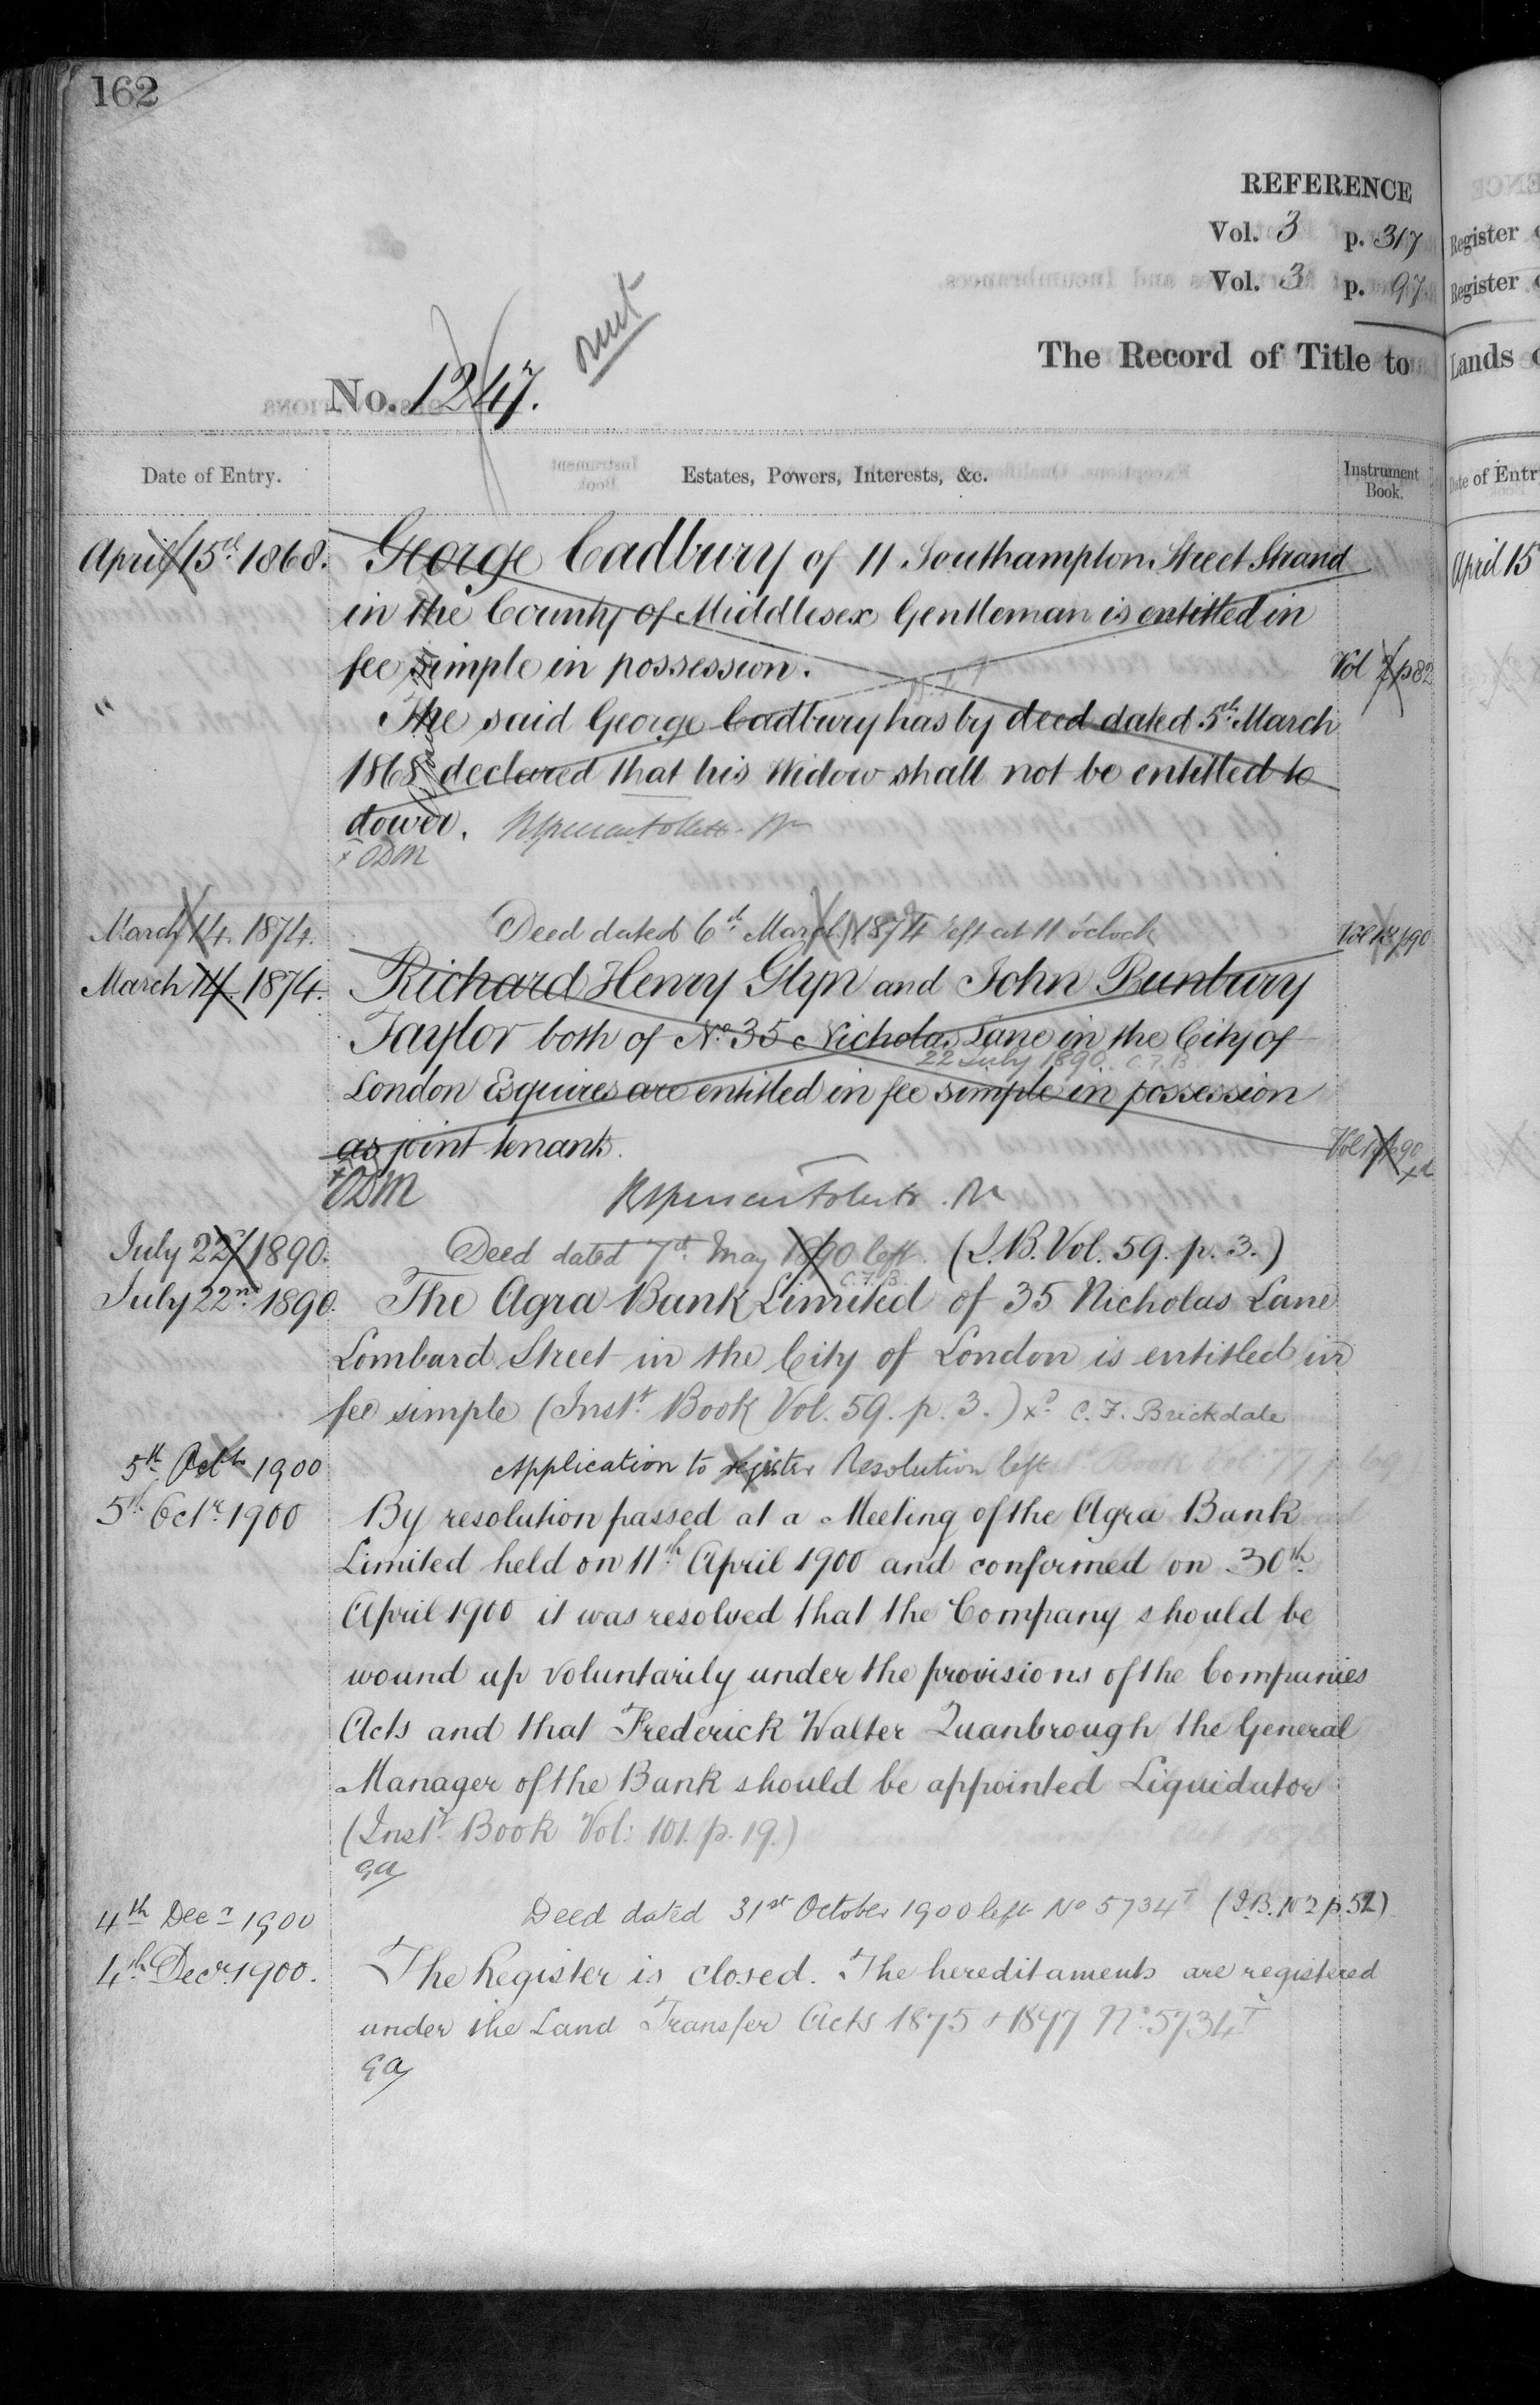 162
REFERENCE
Vol. 3 p. 317
Vol. 3 p. 97
The Record of Title to
No. 1247.
Date of Entry. Estates, Powers, Interests, &c. Instrument Book.
April 15th 1868. George Cadbury of 11 Southampton Street Strand
in the County of Middlesex Gentleman is entitled in
fee simple in possession. Vol 2 p 82
" The said George Cadbury has by deed dated 5th March
1868 declared that his Widow shall not be entitled to
dower.
+ ODM
March 14. 1874. Deed dated 6th March 1874 left at 11 o'clock p 90
March 14. 1874. Richard Henry Glyn and John Bunbury
Taylor both of No. 35 Nicholas Lane in the City of
22 July 1890. C.F.B.
London Esquires are entitled in fee simple in possession
as joint tenants. p 90
+ ODM
July 22/1890. Deed dated 7th May 1890 left. (I.B. Vol. 59. p. 3.)
C.F.B.
July 22nd 1890. The Agra Bank Limited of 35 Nicholas Lane
Lombard Street in the City of London is entitled in
fee simple (Inst. Book Vol. 59. p. 3.) xd C. F. Brickdale
5th Octr 1900 Application to register Resolution left
5th Octr 1900 By resolution passed at a Meeting of the Agra Bank
Limited held on 11th April 1900 and confirmed on 30th
April 1900 it was resolved that the Company should be
wound up voluntarily under the provisions of the Companies
Acts and that Frederick Walter Quanbrough the General
Manager of the Bank should be appointed Liquidator
(Inst. Book Vol: 101. p. 19.)
4th Decr 1900 Deed dated 31st October 1900 left No 5734T (I.B. No 2 p. 52)
4th Decr 1900. The Register is closed. The hereditaments are registered
under the Land Transfer Acts 1875 & 1897 No. 5734T
Register
Register
Lands
Date of Entr
April 15